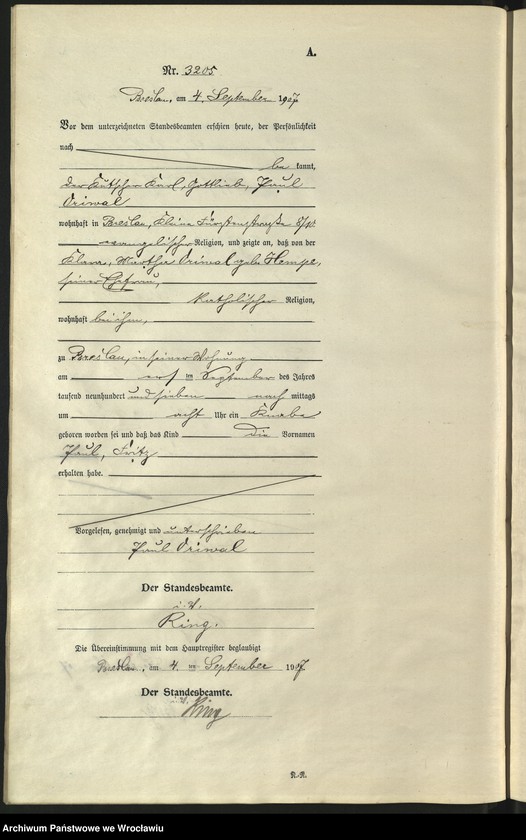 A.
Nr. 3205
Breslau, am 4. September 1907
Vor dem unterzeichneten Standesbeamten erschien heute, der Persönlichkeit
nach
be kannt,
der Kutscher Karl, Gottlieb, Paul
Driwal
wohnhaft in Breslau, Kleine Fürstenstraße
evangelischer Religion, und zeigte an, daß von der
Klara, Martha Driwal geb. Hempe,
seiner Ehefrau,
katholischer Religion,
wohnhaft bei ihm,
zu Breslau, in seiner Wohnung
am ersten September des Jahres
tausend neunhundert und sieben nach mittags
um acht Uhr ein Knabe
geboren worden sei und daß das Kind die Vornamen
Paul, Fritz
erhalten habe.
Vorgelesen, genehmigt und unterschrieben
Paul Driwal
Der Standesbeamte.
i. V.
Ring.
Die Übereinstimmung mit dem Hauptregister beglaubigt
Breslau, am 4. ten September 1907
Der Standesbeamte.
i. V. Ring
Archiwum Państwowe we Wrocławiu